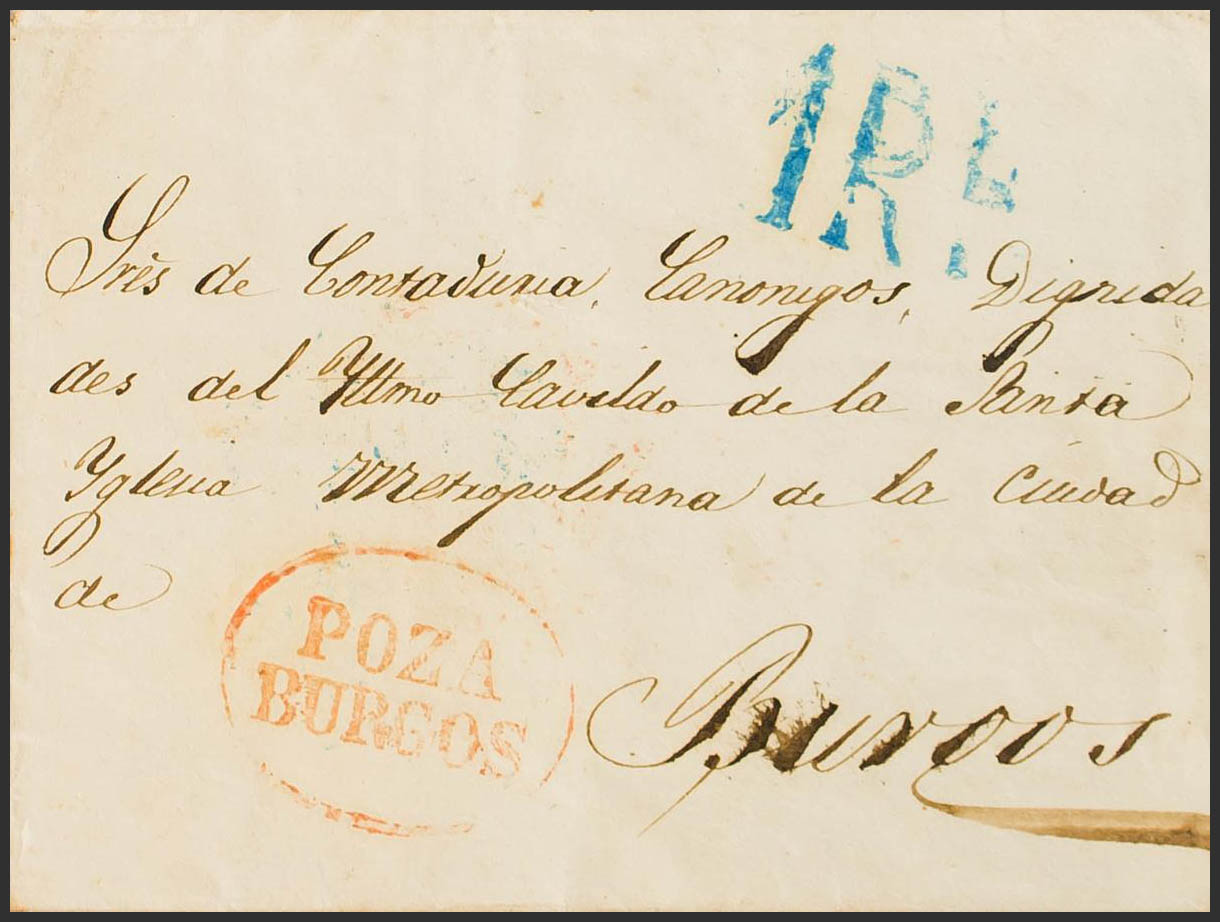 1 RL.
Srēs de Contaduria, Canonigos, Dignida
des del Yltmo Cavildo de la Santa
Yglesia Metropolitana de la Ciudad
de
POZA
BURGOS
Burgos